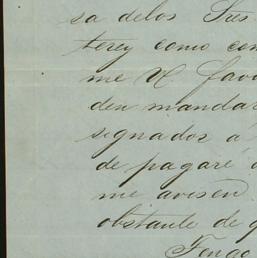 sa delos Tres
terey como con
me V. favo
den mandar
signados á
de pagaré
me avisen.
obstante de q
Tengo